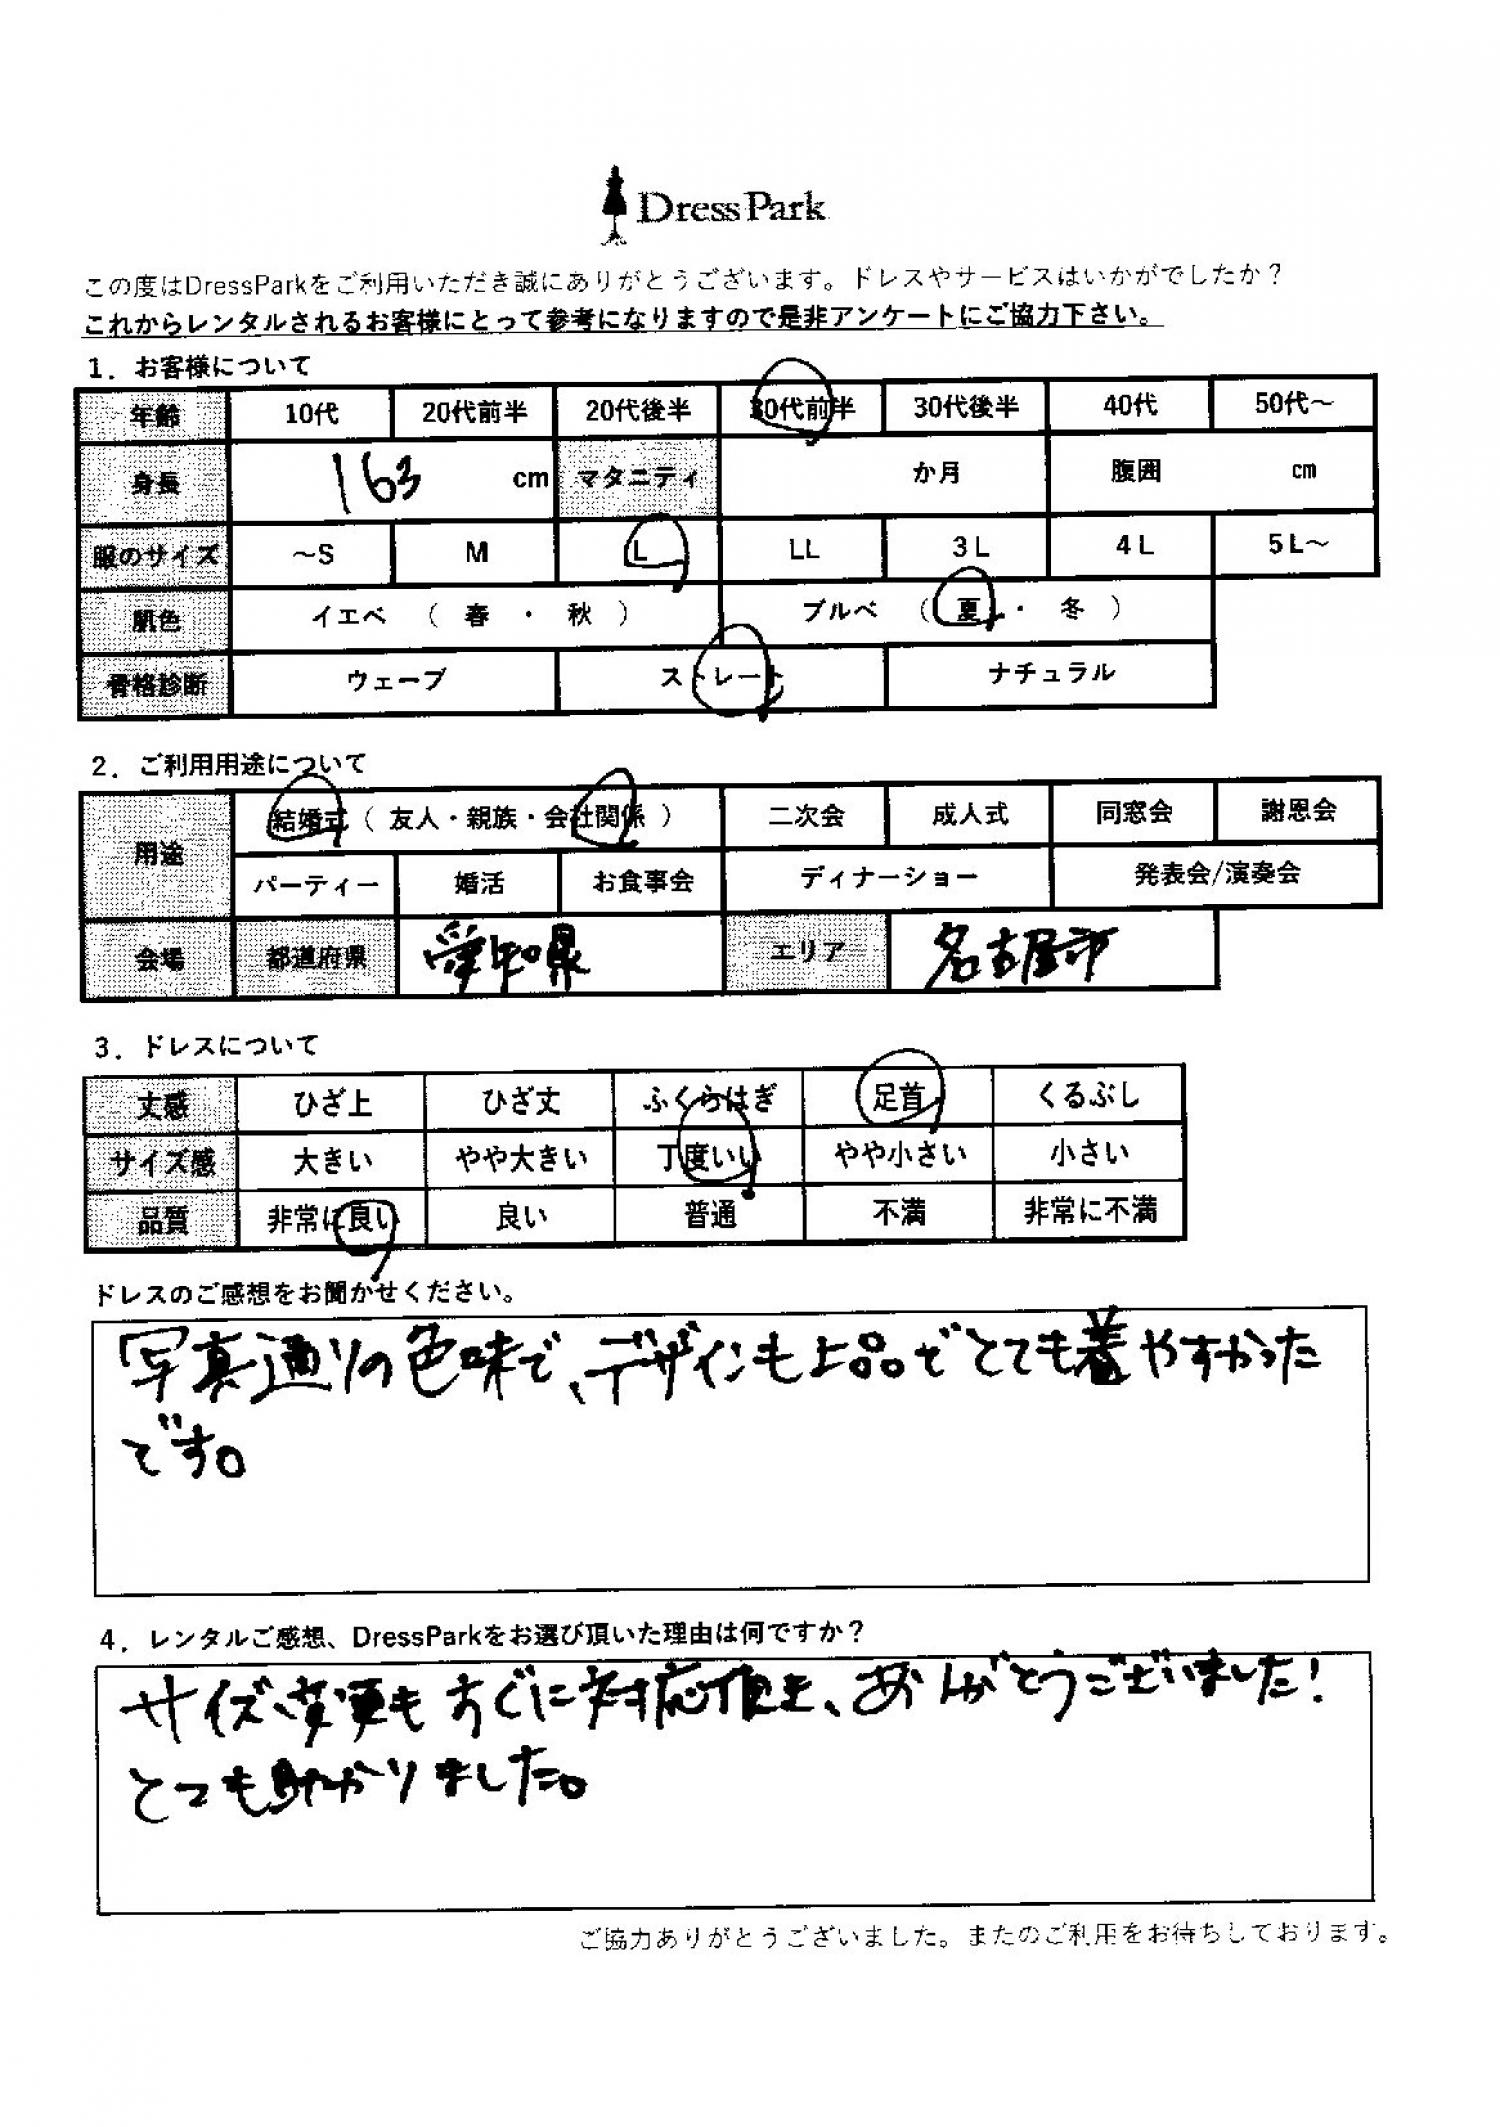 DressPark
この度はDressParkをご利用いただき誠にありがとうございます。ドレスやサービスはいかがでしたか？
これからレンタルされるお客様にとって参考になりますので是非アンケートにご協力下さい。
1．お客様について
年齢 10代 20代前半 20代後半 30代前半 30代後半 40代 50代～
身長 163 cm マタニティ か月 腹囲 cm
服のサイズ ～S M L LL 3L 4L 5L～
肌色 イエベ （ 春 ・ 秋 ） ブルベ （ 夏 ・ 冬 ）
骨格診断 ウェーブ ストレート ナチュラル
2．ご利用用途について
用途 結婚式（ 友人・親族・会社関係 ） 二次会 成人式 同窓会 謝恩会
パーティー 婚活 お食事会 ディナーショー 発表会/演奏会
会場 都道府県 愛知県 エリア 名古屋市
3．ドレスについて
丈感 ひざ上 ひざ丈 ふくらはぎ 足首 くるぶし
サイズ感 大きい やや大きい 丁度いい やや小さい 小さい
品質 非常に良い 良い 普通 不満 非常に不満
ドレスのご感想をお聞かせください。
写真通りの色味で、デザインも上品でとても着やすかった
です。
4．レンタルご感想、DressParkをお選び頂いた理由は何ですか？
サイズ変更もすぐに対応頂き、ありがとうございました！
とても助かりました。
ご協力ありがとうございました。またのご利用をお待ちしております。